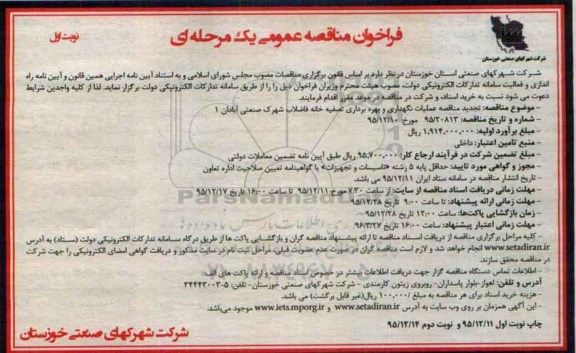 فراخوان مناقصه عمومی یک مرحله ای
نوبت اول
شرکت شهرکهای صنعتی خوزستان
شرکت شهرکهای صنعتی استان خوزستان در نظر دارد بر اساس قانون برگزاری مناقصات مصوب مجلس شورای اسلامی و به استناد آیین نامه اجرایی همین قانون و آیین نامه راه
اندازی و فعالیت سامانه تدارکات الکترونیکی دولت، مصوب هیئت محترم وزیران فراخوان ذیل را از طریق سامانه تدارکات الکترونیکی دولت برگزار نماید. لذا از کلیه واجدین شرایط
دعوت می شود نسبت به خرید اسناد، و شرکت در مناقصه در موعد مقرر اقدام فرمایند.
- موضوع مناقصه: تجدید مناقصه عملیات نگهداری و بهره برداری تصفیه خانه فاضلاب شهرک صنعتی آبادان ۱
- شماره و تاریخ مناقصه: ۹۵/۲۰۸۱۳ مورخ ۹۵/۱۲/۱۰
- مبلغ برآورد اولیه: ۱,۹۱۴,۰۰۰,۰۰۰ ریال
- منبع تامین اعتبار: داخلی
- مبلغ تضمین شرکت در فرآیند ارجاع کار: ۹۵,۷۰۰,۰۰۰ ریال طبق آیین نامه تضمین معاملات دولتی
- مجوز و گواهی مورد تایید: حداقل پایه ۵ رشته «تاسیسات و تجهیزات» یا گواهینامه تعیین صلاحیت اداره تعاون
- تاریخ انتشار مناقصه در سامانه ستاد ایران ۹۵/۱۲/۱۱ می باشد.
- مهلت زمانی دریافت اسناد مناقصه از سایت: از ساعت ۷:۳۰ مورخ ۹۵/۱۲/۱۱ تا ساعت ۱۶:۰۰ تاریخ ۹۵/۱۲/۱۷
- مهلت زمانی ارائه پیشنهاد: تا ساعت ۹:۰۰ تاریخ ۹۵/۱۲/۲۸
- زمان بازگشایی پاکت‌ها: ساعت ۱۲:۰۰ تاریخ ۹۵/۱۲/۲۸
- مهلت زمانی اعتبار پیشنهاد: ساعت ۱۶:۰۰ تاریخ ۹۶/۳/۲۷
- کلیه مراحل برگزاری مناقصه از دریافت اسناد مناقصه تا ارائه پیشنهاد مناقصه گران و بازگشایی پاکت ها از طریق درگاه سامانه تدارکات الکترونیکی دولت (ستاد) به آدرس
www.setadiran.ir انجام خواهد شد و لازم است مناقصه گران در صورت عدم عضویت قبلی، مراحل ثبت نام در سایت مذکور و دریافت گواهی امضای الکترونیکی را جهت شرکت
در مناقصه محقق سازند.
- اطلاعات تماس دستگاه مناقصه گزار جهت دریافت اطلاعات بیشتر در خصوص اسناد مناقصه و ارائه پاکت های الف:
آدرس و تلفن: اهواز-بلوار پاسداران- روبروی زیتون کارمندی - شرکت شهرکهای صنعتی خوزستان- تلفن: ۵-۳۴۴۴۳۰۰۳
- هزینه خرید اسناد برای هر مناقصه به مبلغ ۱۰۰,۰۰۰/ ریال(غیر قابل برگشت) می باشد.
- این آگهی همزمان بر روی وب سایت به آدرس www.setadiran.ir و www.iets.mporg.ir موجود می‌باشد.
چاپ نوبت اول ۹۵/۱۲/۱۱ و نوبت دوم ۹۵/۱۲/۱۴
شرکت شهرکهای صنعتی خوزستان